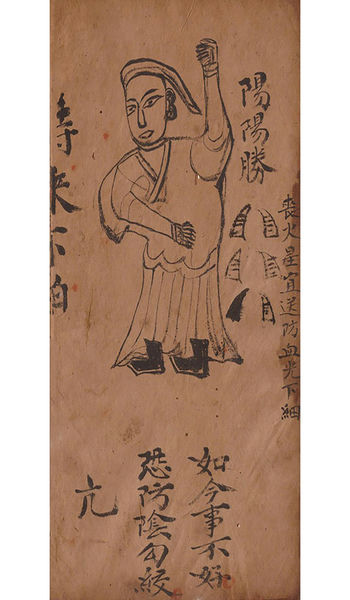 陽陽勝
喪火星宜送防血光下
如今事不好
恐防陰勾絞
亢
來不怕